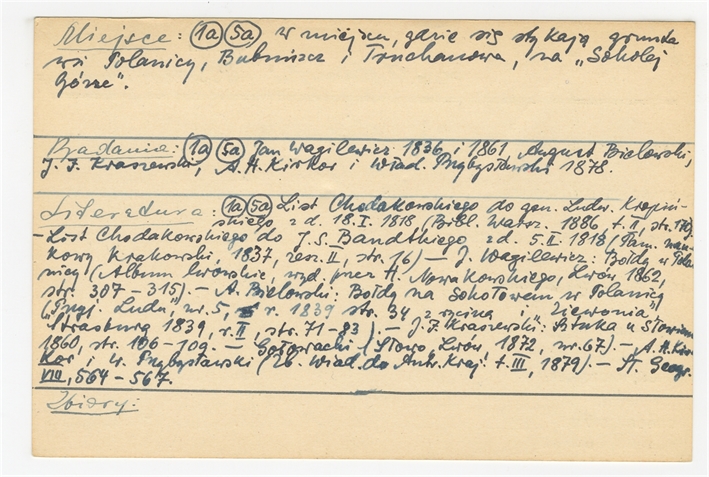 Miejsce: 1a 5a w miejscu, gdzie się stykają grunta
wsi Polanicy, Bubniszcz i Truchanowa, na „Sokolej
Górze".
Badania: 1a 5a Jan Wagilewicz 1836 i 1861 August Bielowski,
J. I. Kraszewski, A. H. Kirkor i Wład. Przybysławski 1878.
Literatura: 1a 5a List Chodakowskiego do gen. Ludw. Kropiń-
skiego z d. 18.I. 1818 (Bibl. Warsz. 1886, t. II, str.
– List Chodakowskiego do J. S. Bandtkiego z d. 5.II 1818 (Pam. nau-
kowy Krakowski, 1837, zesz. II, str. 16) – J. Wagilewicz: Bołdy w Pola-
nicy (Album lwowskie, wyd. przez H. Nowakowskiego, Lwów 1862,
str. 307–315). – A. Bielowski: Bołdy na Sokołowem w Polanicy
„Przyj. Ludu", nr. 5, r. 1839 str. 34 z ryciną i „Ziewonia"
Strasburg 1839, r. II, str. 71–83). – J. I. Kraszewski: Sztuka u Słowian
1860, str. 106–109. – (Słowo Lwów, 1872, nr. 67). – A. H. Kir-
kor i W. Przybysławski (Zb. Wiad. do Antr. Kraj. t. III, 1879). – Sł. Geogr.
VIII, 564–567.
Zbiory: